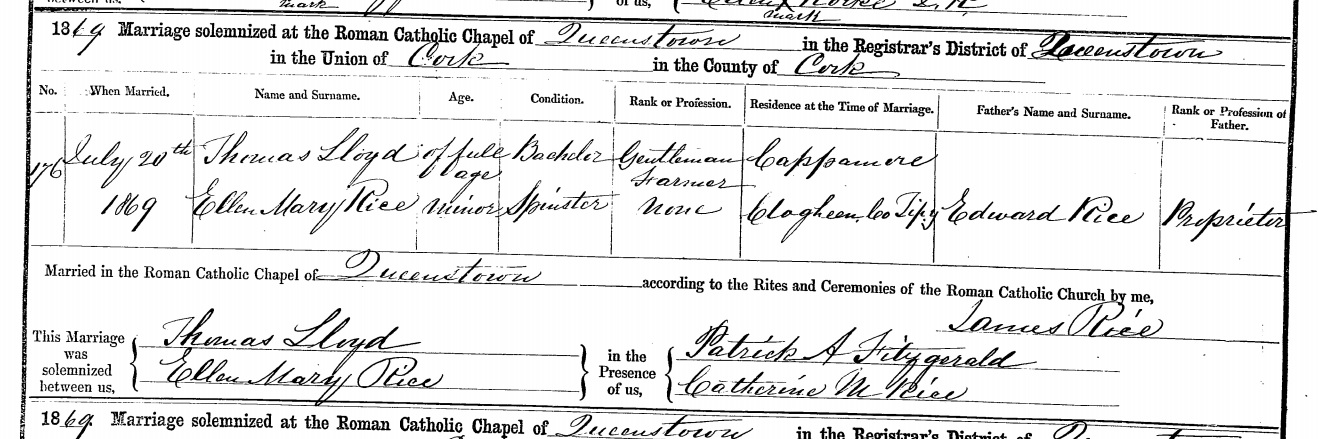 between us,
mark
of us,
mark
1869 Marriage solemnized at the Roman Catholic Chapel of Queenstown in the Registrar's District of Queenstown
in the Union of Cork in the County of Cork
No. When Married. Name and Surname. Age. Condition. Rank or Profession. Residence at the Time of Marriage. Father's Name and Surname. Rank or Profession of Father.
176 July 20th Thomas Lloyd of full age Bachelor Gentleman Farmer Cappamore
1869 Ellen Mary Rice minor Spinster None Clogheen Co Tipy Edward Rice Proprietor
Married in the Roman Catholic Chapel of Queenstown according to the Rites and Ceremonies of the Roman Catholic Church by me,
James Rice
This Marriage was solemnized between us, Thomas Lloyd
Ellen Mary Rice
in the Presence of us, Patrick A Fitzgerald
Catherine M Rice
1869. Marriage solemnized at the Roman Catholic Chapel of Queenstown in the Registrar's District of